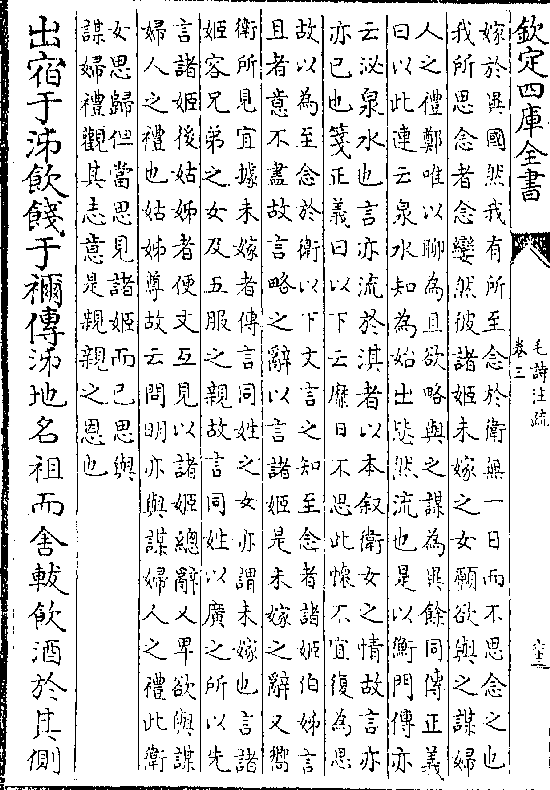 欽定四庫全書
毛詩注疏
卷三
嫁於異國然我有所至念於衛無一日而不思念之也
我所思念者念孌然彼諸姬未嫁之女願欲與之謀婦
人之禮鄭唯以聊為且欲略與之謀為異餘同傳正義
曰以此連云泉水知為始出毖然流也是以衡門傳亦
云泌泉水也言亦流於淇者以本叙衛女之情故言亦
亦已也箋正義曰以下云靡日不思此懷不宜復為思
故以為至念於衛以下文言之知至念者諸姬伯姊言
且者意不盡故言略之辭以言諸姬是未嫁之辭又嚮
衛所見宜據未嫁者傳言同姓之女亦謂未嫁也言諸
姬容兄弟之女及五服之親故言同姓以廣之所以先
言諸姬後姑姊者便文互見以諸姬總辭又卑欲與謀
婦人之禮也姑姊尊故云問明亦與謀婦人之禮此衛
女思歸但當思見諸姬而已思與
謀婦禮觀其志意是親親之恩也
出宿于泲飲餞于禰傳泲地名祖而舍軷飲酒於其側